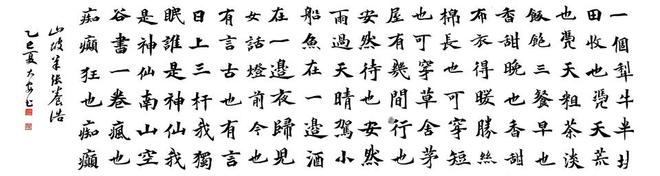 一個犁牛半
田收也凴天荒
也凴天粗茶淡
飯飽三餐早也
香甜晚也香甜
布衣得暖勝絲
棉長也可穿短
也可穿草舍茅
屋有幾間行也
安然待也安然
雨過天晴駕小
船魚在一邊酒
在一邊夜歸兒
女話燈前今也
有言古也有言
日上三杆我獨
眠誰是神仙我
是神仙南山空
谷書一卷瘋也
痴癲狂也痴癲
山坡羊張養浩
乙巳夏